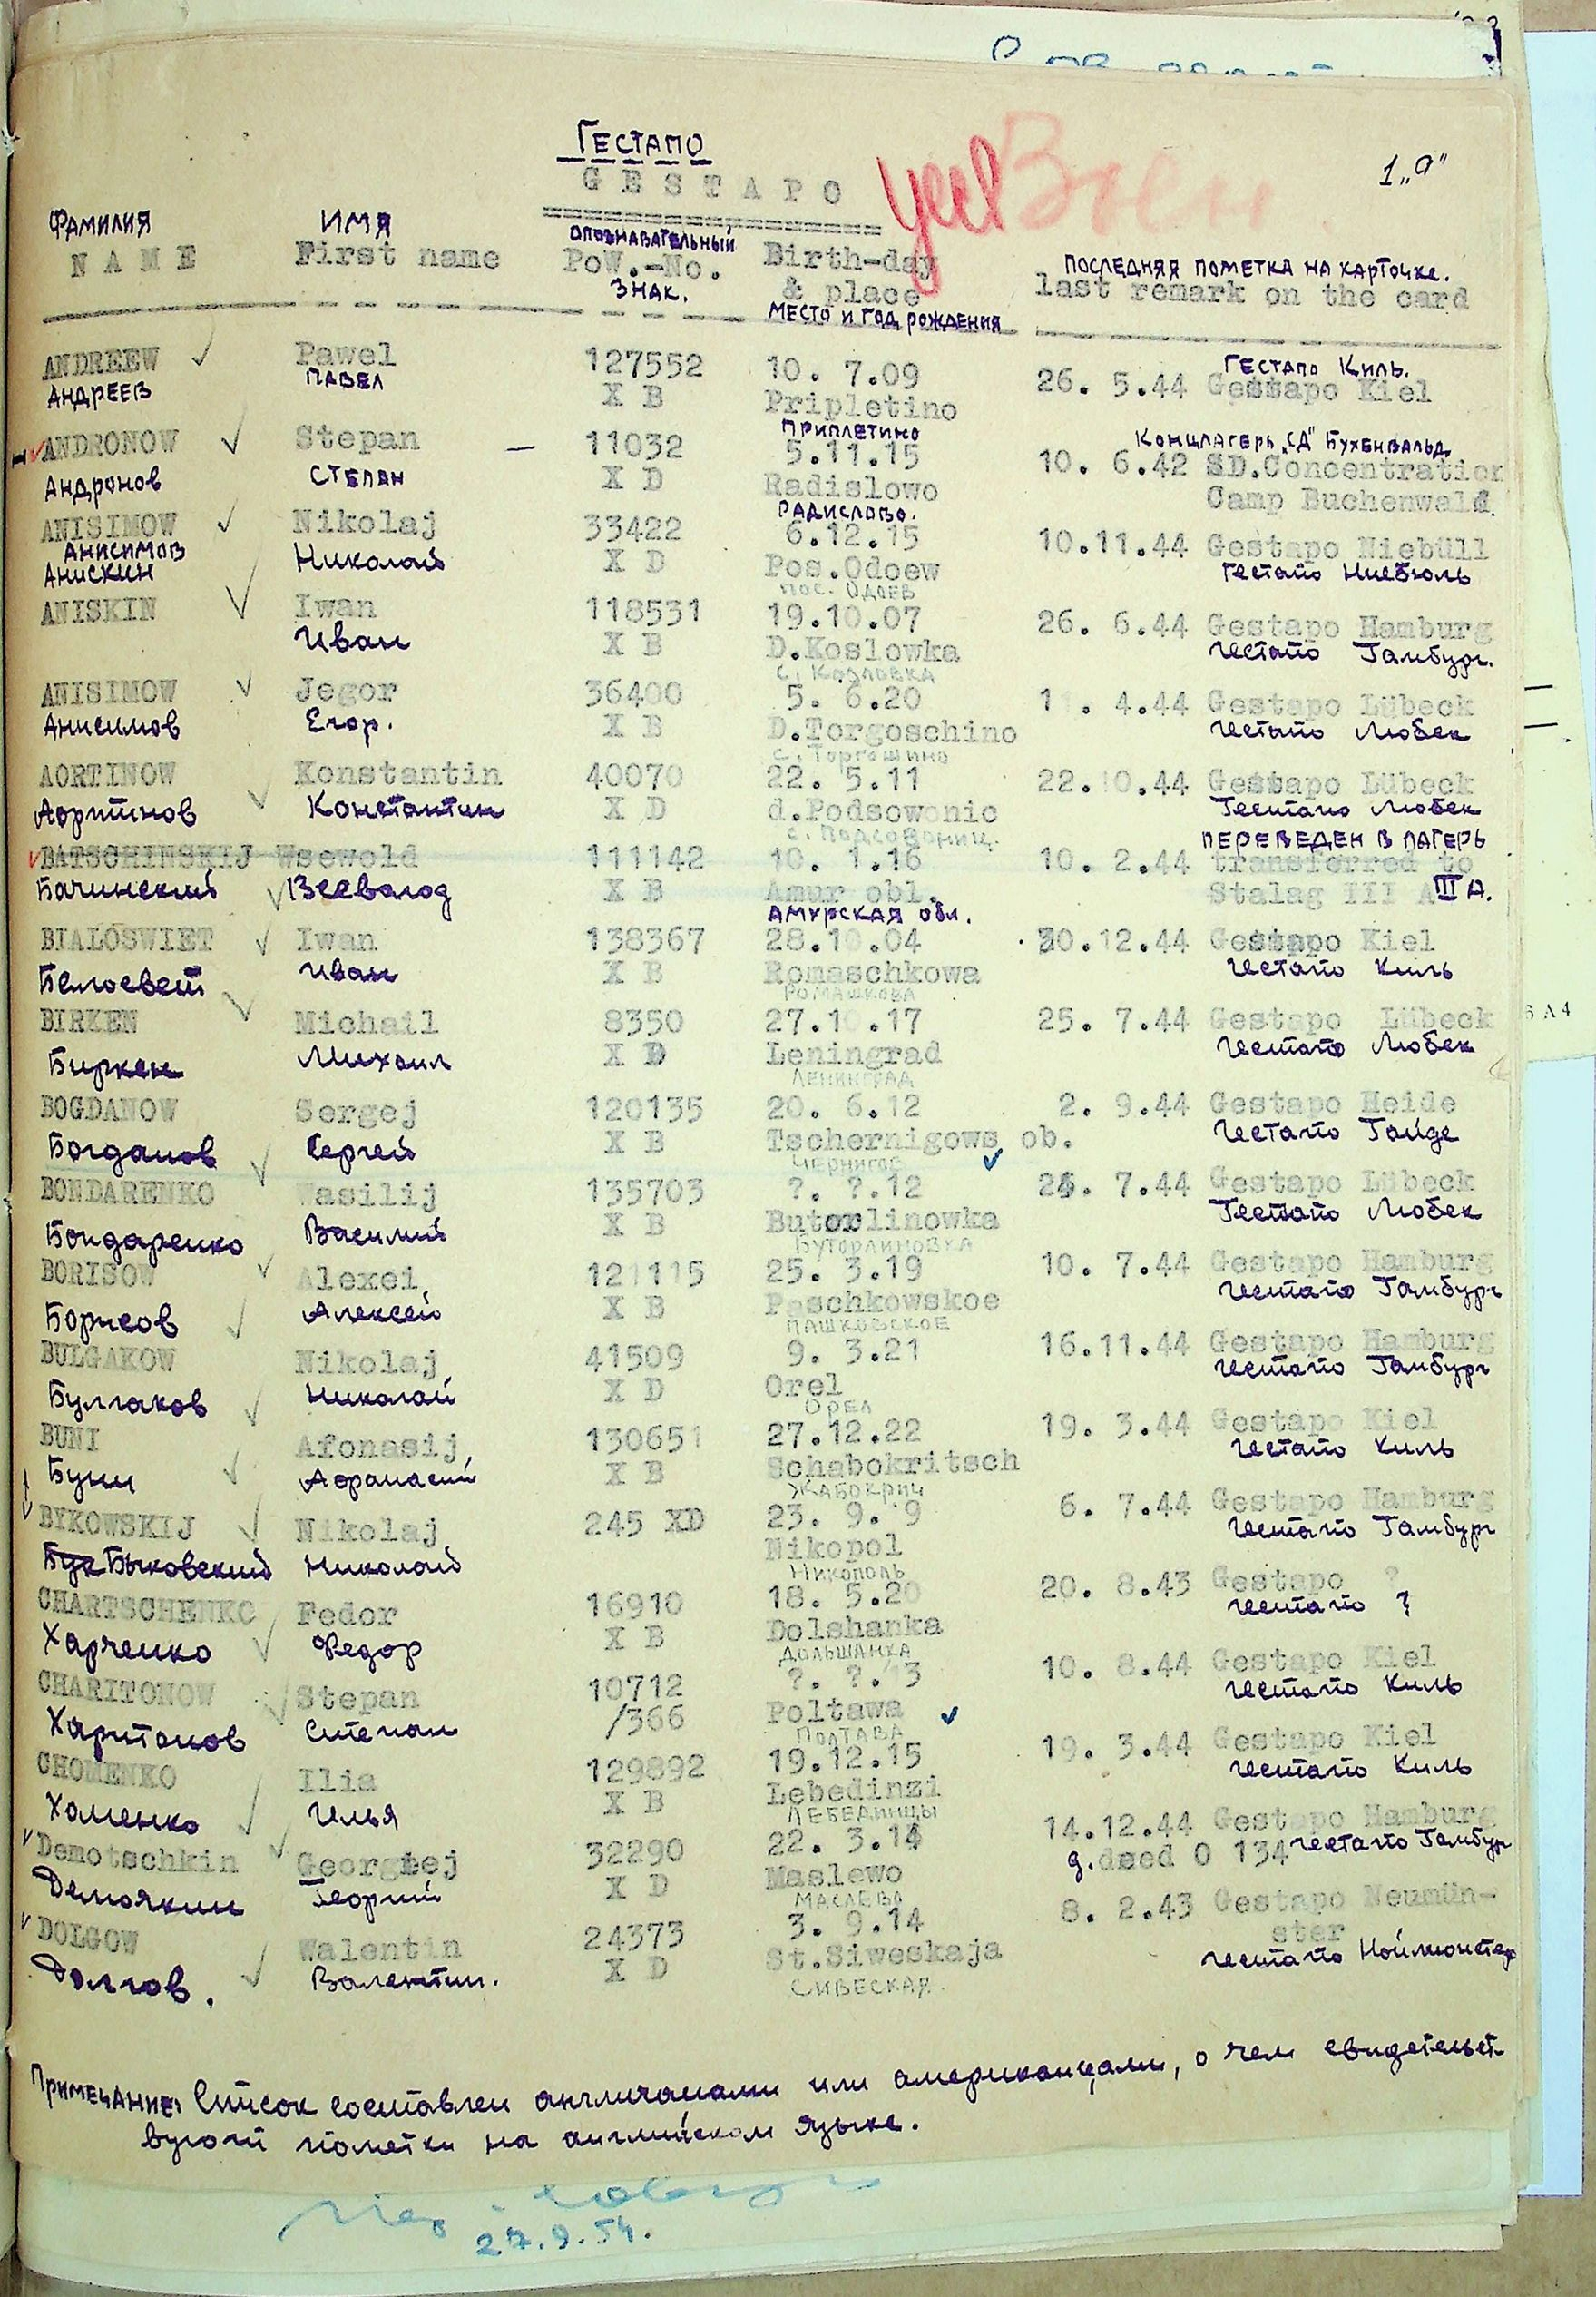 1 „а"
ГЕСТАПО
GESTAPO
ФАМИЛИЯ ИМЯ ОПОЗНАВАТЕЛЬНЫЙ
NAME First name PoW.-No. Birth-day ПОСЛЕДНЯЯ ПОМЕТКА НА КАРТОЧКЕ.
ЗНАК. & place last remark on the card
МЕСТО И ГОД РОЖДЕНИЯ
ANDREEW Pawel 127552 10. 7.09 ГЕСТАПО КИЛЬ.
АНДРЕЕВ ПАВЕЛ X B Pripletino 26. 5.44 Gestapo Kiel
ПРИПЛЕТИНО
ANDRONOW Stepan — 11032 5.11.15 КОНЦЛАГЕРЬ „СД" БУХЕНВАЛЬД
Андронов СТЕПАН X D Radislowo 10. 6.42 SD.Concentration
РАДИСЛОВО. Camp Buchenwald.
ANISIMOW Nikolaj 33422 6.12.15 10.11.44 Gestapo Niebüll
АНИСИМОВ Николай X D Pos.Odoew Гестапо Ниебюль
АНИСКИН ПОС. ОДОЕВ
ANISKIN Iwan 118531 19.10.07 26. 6.44 Gestapo Hamburg
Иван X B D.Koslowka Гестапо Гамбург.
С. КОЗЛОВКА
ANISIMOW Jegor 36400 5. 6.20 1 . 4.44 Gestapo Lübeck
Анисимов Егор. X B D.Torgoschino Гестапо Любек
С. ТОРГОШИНО
AORTINOW Konstantin 40070 22. 5.11 22. 0.44 Gestapo Lübeck
Аортинов Константин X D d.Podsowonic Гестапо Любек
С. ПОДСОВОНИЦ. ПЕРЕВЕДЕН В ЛАГЕРЬ
BATSCHINSKIJ Wsewold 111142 10. 1.16 10. 2.44 transferred to
Бачинский Всеволод X B Amur obl. Stalag III A III А.
АМУРСКАЯ ОБЛ.
BIALOSWIET Iwan 138367 28.10.04 30.12.44 Gestapo Kiel
Белосвет Иван X B Romaschkowa Гестапо Киль
РОМАШКОВА
BIRKEN Michail 8350 27.10.17 25. 7.44 Gestapo Lübeck
Биркен Михаил X D Leningrad Гестапо Любек
ЛЕНИНГРАД
BOGDANOW Sergej 120135 20. 6.12 2. 9.44 Gestapo Heide
Богданов Сергей X B Tschernigows ob. Гестапо Гайде
ЧЕРНИГОВ
BONDARENKO Wasilij 135703 ?. ?.12 7.44 Gestapo Lübeck
Бондаренко Василий X B Butorlinowka Гестапо Любек
БУТОРЛИНОВКА
BORISOW Alexei 121115 25. 3.19 10. 7.44 Gestapo Hamburg
Борисов Алексей X B Paschkowskoe Гестапо Гамбург
ПАШКОВСКОЕ
BULGAKOW Nikolaj 41509 9. 3.21 16.11.44 Gestapo Hamburg
Булгаков Николай X D Orel Гестапо Гамбург
ОРЕЛ
BUNI Afonasij 130651 27.12.22 19. 3.44 Gestapo Kiel
Буни Афанасий X B Schabokritsch Гестапо Киль
ЖАБОКРИЧ
BYKOWSKIJ Nikolaj 245 XD 23. 9. 9 6. 7.44 Gestapo Hamburg
Бук Быковский Николай Nikopol Гестапо Гамбург
НИКОПОЛЬ
CHARTSCHENKO Fedor 16910 18. 5.20 20. 8.43 Gestapo ?
Харченко Федор X B Dolshanka Гестапо ?
ДОЛЬШАНКА
CHARITONOW Stepan 10712 ?. ?.13 10. 8.44 Gestapo Kiel
Харитонов Степан /366 Poltawa Гестапо Киль
ПОЛТАВА
CHOMENKO Ilia 129892 19.12.15 19. 3.44 Gestapo Kiel
Хоменко Илья X B Lebedinzi Гестапо Киль
ЛЕБЕДИНЦЫ
Demotschkin Georgiej 32290 22. 3.14 14.12.44 Gestapo Hamburg
Демочкин Георгий X D Maslewo g.deed O 134 Гестапо Гамбург
МАСЛЕВО
DOLGOW Walentin 24373 3. 9.14 8. 2.43 Gestapo Neumün-
ster
Долгов. Валентин. X D St.Siweskaja Гестапо Ноймюнстер
СИВЕСКАЯ.
ПРИМЕЧАНИЕ: Список составлен англичанами или американцами, о чем свидетельст-
вуют пометки на английском языке.
27.9.54.